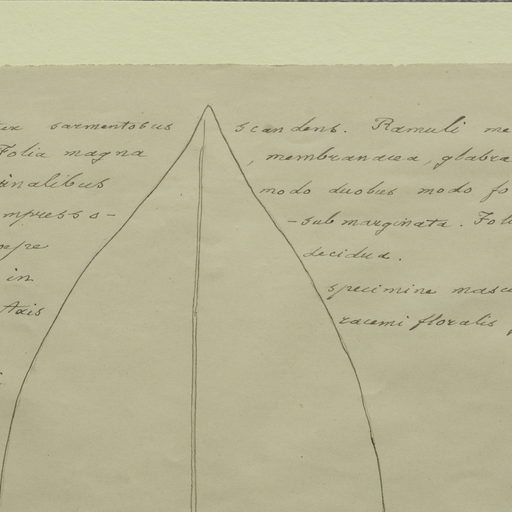 sarmentosus scandens. Ramuli me
Folia magna, membranacea, glabra
inalibus modo duobus modo fo
mpresso- -submarginata. Foli
decidua.
in specimine mascu
Axis racemi floralis